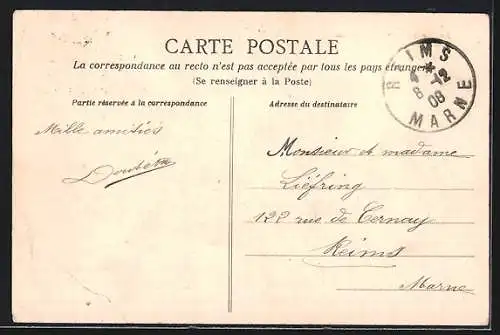 CARTE POSTALE
La correspondance au recto n'est pas acceptée par tous les pays étrangers
(Se renseigner à la Poste)
Partie réservée à la correspondance
Adresse du destinataire
REIMS
8 -12
08
MARNE
Mille amitiés
Monsieur et madame
Liéfring
122 rue de Cernay
Reims
Marne